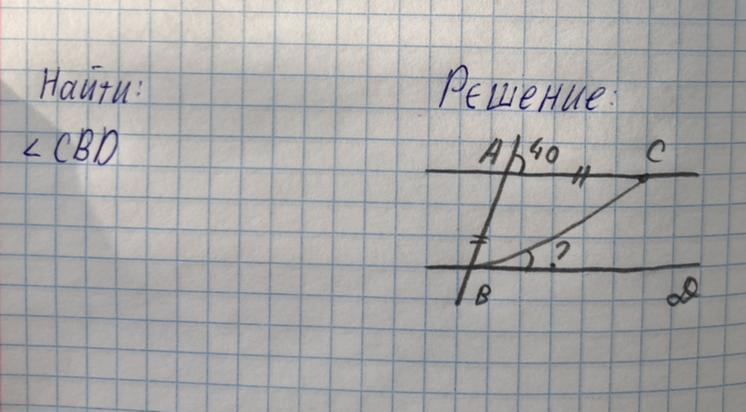 Найти:
< CBD
Решение:
A 40 C
?
B D